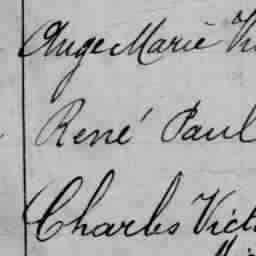 Ange Marie
René Paul
Charles Vict